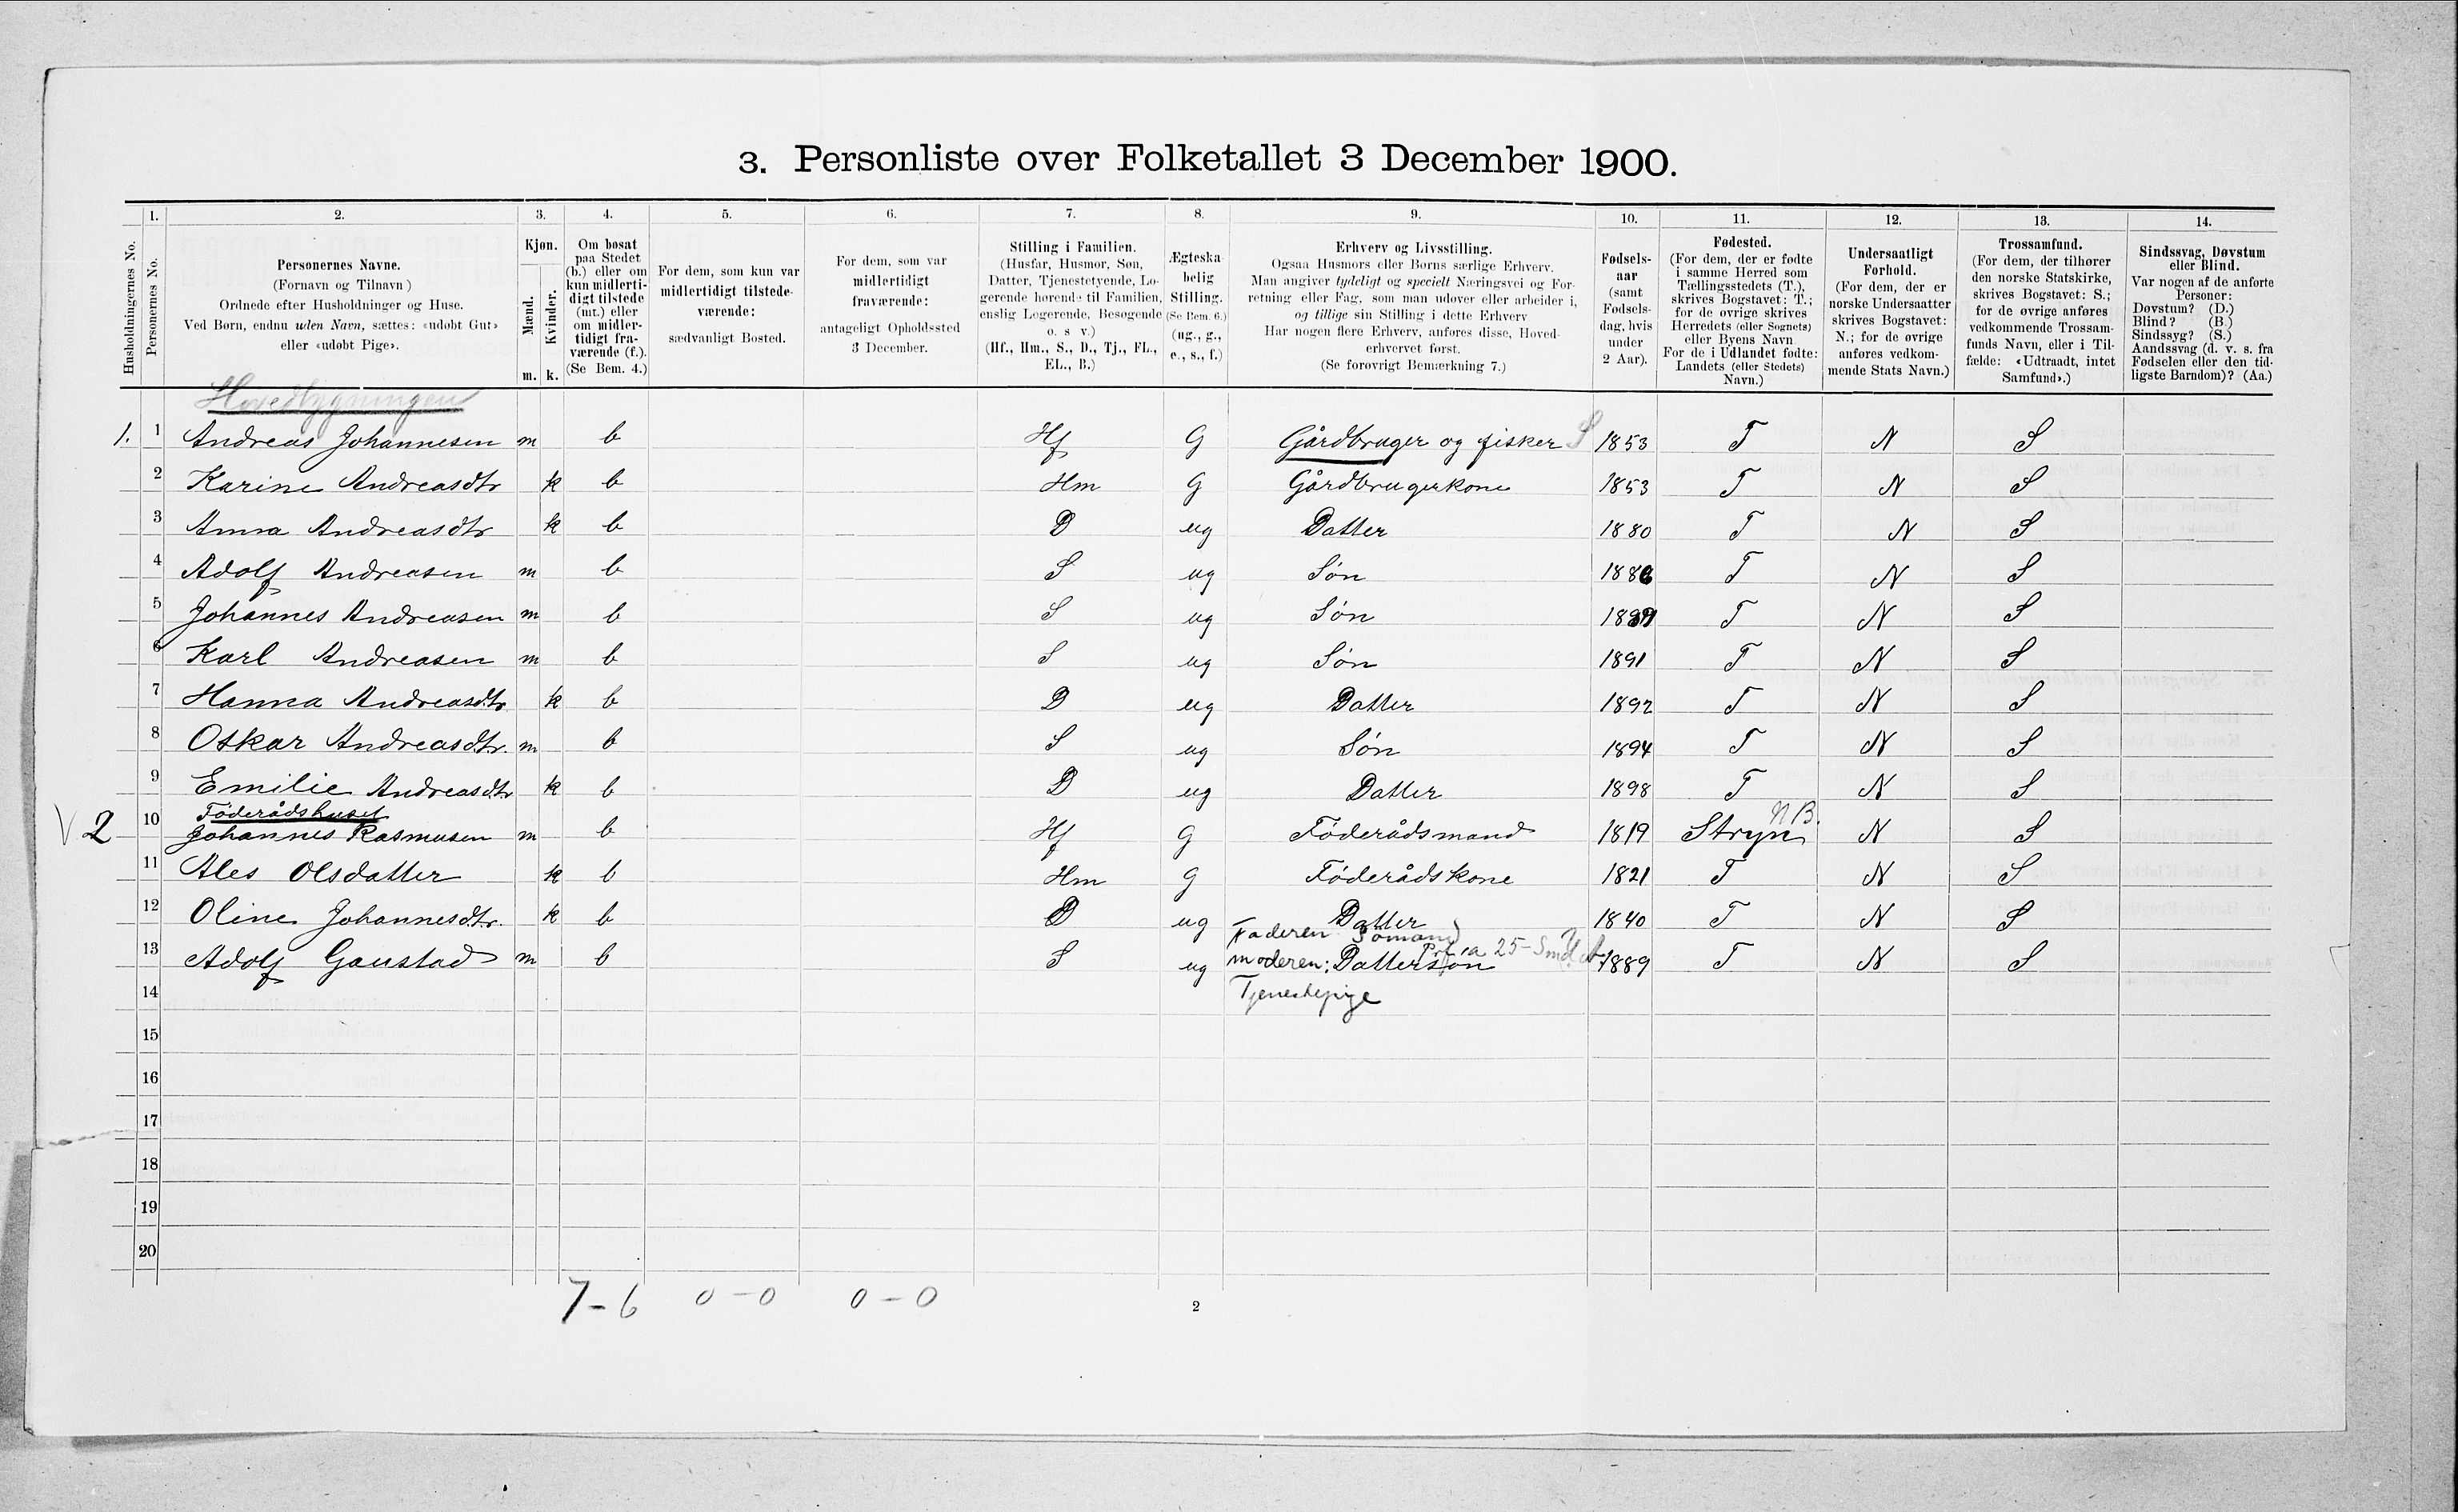 3. Personliste over Folketallet 3 December 1900.
Husholdningernes No.
1.
Personernes No.
2.
Personernes Navne.
(Fornavn og Tilnavn)
Ordnede efter Husholdninger og Huse.
Ved Børn, endnu uden Navn, sættes: «udøbt Gut»
eller «udøbt Pige».
3.
Kjøn.
Mænd.
Kvinder.
m. k.
4.
Om bosat
paa Stedet
(b.) eller om
kun midlerti-
digt tilstede
(mt.) eller
om midler-
tidigt fra-
værende (f.).
(Se Bem. 4.)
5.
For dem, som kun var
midlertidigt tilstede-
værende:
sædvanligt Bosted.
6.
For dem, som var
midlertidigt
fraværende:
antageligt Opholdssted
3 December.
7.
Stilling i Familien.
(Husfar, Husmor, Søn,
Datter, Tjenestetyende, Lo-
gerende hørende til Familien,
enslig Logerende, Besøgende
o. s v.)
(Hf., Hm., S., D., Tj., FL.,
EL., B.)
8.
Ægteska-
belig
Stilling.
(Se Bem. 6.)
(ug., g.,
e., s., f.)
9.
Erhverv og Livsstilling.
Ogsaa Husmors eller Børns særlige Erhverv.
Man angiver tydeligt og specielt Næringsvei og For-
retning eller Fag, som man udøver eller arbeider i,
og tillige sin Stilling i dette Erhverv
Har nogen flere Erhverv, anføres disse, Hoved-
erhvervet først.
(Se forøvrigt Bemærkning 7.)
10.
Fødsels-
aar
(samt
Fødsels-
dag, hvis
under
2 Aar).
11.
Fødested.
(For dem, der er fødte
i samme Herred som
Tællingsstedets (T.),
skrives Bogstavet: T.;
for de øvrige skrives
Herredets (eller Sognets)
eller Byens Navn
For de i Udlandet fødte:
Landets (eller Stedets)
Navn.)
12.
Undersaatligt
Forhold.
(For dem, der er
norske Undersaatter
skrives Bogstavet:
N.; for de øvrige
anføres vedkom-
mende Stats Navn.)
13.
Trossamfund.
(For dem, der tilhører
den norske Statskirke,
skrives Bogstavet: S.;
for de øvrige anføres
vedkommende Trossam-
funds Navn, eller i Til-
fælde: «Udtraadt, intet
Samfund».)
14.
Sindssvag, Døvstum
eller Blind.
Var nogen af de anførte
Personer:
Døvstum? (D.)
Blind? (B.)
Sindssyg? (S.)
Aandssvag (d. v. s. fra
Fødselen eller den tid-
ligste Barndom)? (Aa.)
Hovedbygningen
1. 1 Andreas Johannesen m b Hf G Gårdbruger og fisker S 1853 T N S
2 Karine Andreasdtr k b Hm G Gårdbrugerkone 1853 T N S
3 Anna Andreasdtr k b D ug Datter 1880 T N S
4 Adolf Andreasen m b S ug Søn 1886 T N S
5 Johannes Andreasen m b S ug Søn 1889 T N S
6 Karl Andreasen m b S ug Søn 1891 T N S
7 Hanna Andreasdtr k b D ug Datter 1892 T N S
8 Oskar Andreasdtr. m b S ug Søn 1894 T N S
9 Emilie Andreasdtr k b D ug Datter 1898 T N S
Föderådshuset
V 2 10 Johannes Rasmusen m b Hf G Föderådsmand 1819 Stryn NB. N S
11 Ales Olsdatter k b Hm G Föderådskone 1821 T N S
12 Oline Johannesdtr. k b D ug Datter 1840 T N S
Faderen Sömand
13 Adolf Gaustad m b S ug moderen: Dattersøn 1889 T N S
14 Tjenestepige
15
16
17
18
19
20
7-6 0-0 0-0
2